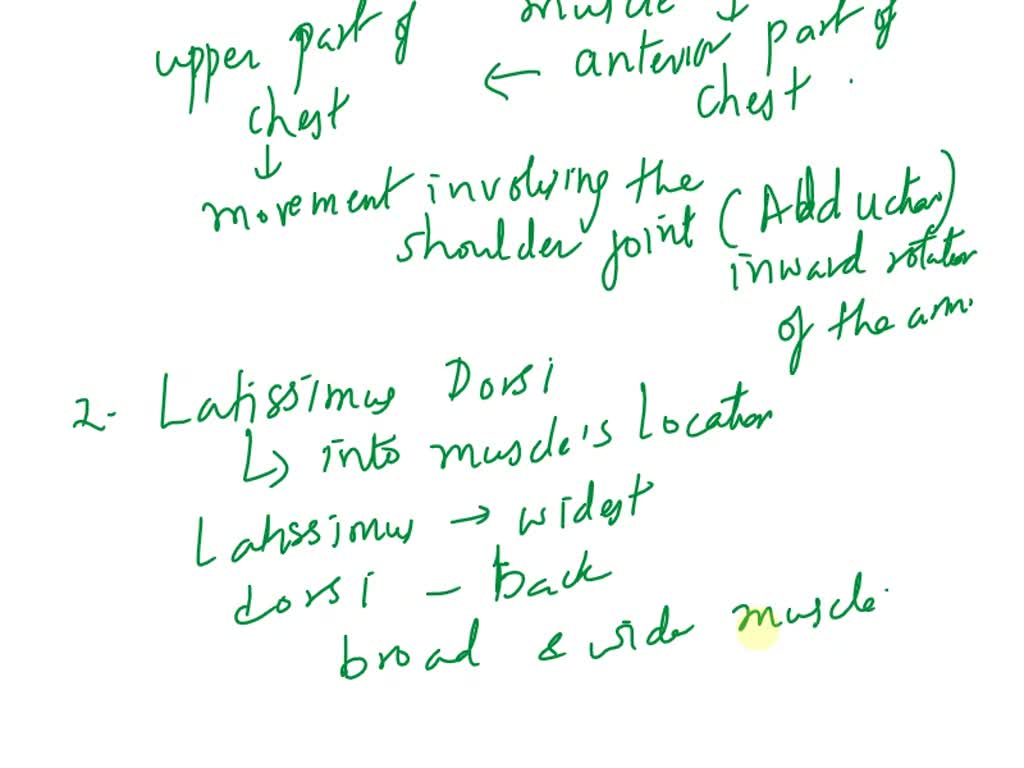 muscle ↓
upper part of ← anterior part of
chest chest.
↓
movement involving the
shoulder joint (Adduction)
inward rotation
of the arm.
2. Latissimus Dorsi
↳ into muscle's location
Latissimus → widest
dorsi - back
broad & wide muscle.